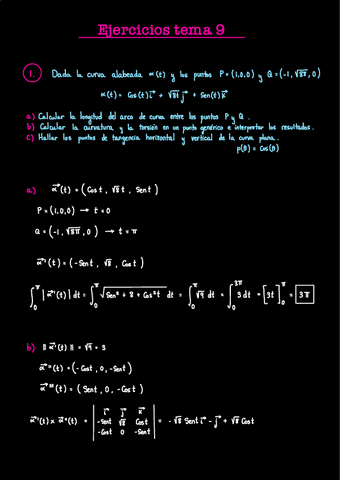 Ejercicios tema 9
1. Dada la curva alabeada α(t) y los puntos P=(1,0,0) y Q=(-1,√8π,0)
α(t) = Cos(t) i⃗ + √8t j⃗ + Sen(t) k⃗
a) Calcular la longitud del arco de curva entre los puntos P y Q.
b) Calcular la curvatura y la torsión en un punto genérico e interpretar los resultados.
c) Hallar los puntos de tangencia horizontal y vertical de la curva plana.
ρ(θ) = Cos(θ)
a) α⃗(t) = (Cost, √8t, Sent)
P = (1,0,0) → t=0
Q = (-1, √8π, 0) → t=π
α⃗'(t) = (-Sent, √8, Cost)
∫₀^π |α⃗'(t)| dt = ∫₀^π √(Sen²t + 8 + Cos²t) dt = ∫₀^π √9 dt = ∫₀^3π 3 dt = [3t]₀^π = 3π
b) ‖α⃗'(t)‖ = √9 = 3
α⃗''(t) = (-Cost, 0, -Sent)
α⃗'''(t) = (Sent, 0, -Cost)
α⃗'(t) x α⃗''(t) = | i⃗ j⃗ k⃗ |
| -Sent √8 Cost | = -√8 Sent i⃗ - j⃗ + √8 Cost
| -Cost 0 -Sent |